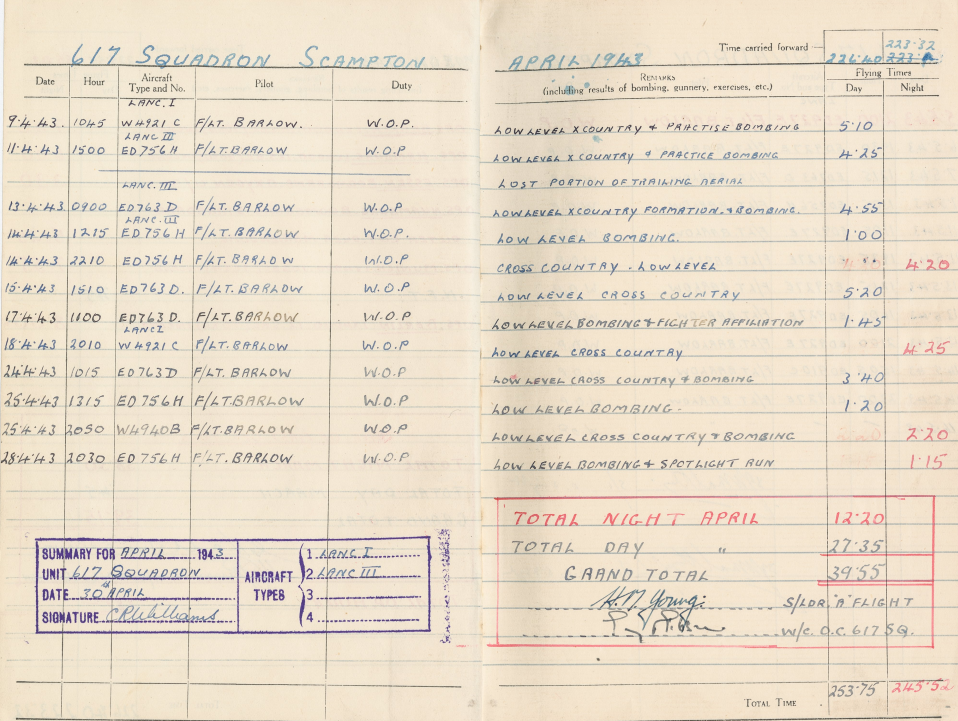 617 SQUADRON SCAMPTON
Date Hour Aircraft Type and No. Pilot Duty
LANC. I
9.4.43. 1045 W4921 C F/LT. BARLOW. W.O.P.
LANC III
11.4.43 1500 ED756H F/LT. BARLOW W.O.P
LANC. III
13.4.43 0900 ED763D F/LT. BARLOW W.O.P
LANC. III
14.4.43 1215 ED756H F/LT. BARLOW W.O.P.
14.4.43 2210 ED756H F/LT. BARLOW W.O.P
15.4.43 1510 ED763D. F/LT. BARLOW W.O.P
17.4.43 1100 ED763D. F/LT. BARLOW W.O.P
LANC I
18.4.43 2010 W4921 C F/LT. BARLOW W.O.P
24.4.43 1015 ED763D F/LT. BARLOW W.O.P
25.4.43 1315 ED756H F/LT. BARLOW W.O.P
25.4.43 2050 W4940B F/LT. BARLOW W.O.P
28.4.43 2030 ED756H F/LT. BARLOW W.O.P
SUMMARY FOR APRIL 1943
UNIT 617 SQUADRON
DATE 30th APRIL
SIGNATURE CRWilliams
AIRCRAFT TYPES
1 LANC I
2 LANC III
3
4
APRIL 1943
Time carried forward — 226.40 223.32
Remarks
(including results of bombing, gunnery, exercises, etc.)
Flying Times
Day Night
LOW LEVEL X COUNTRY & PRACTISE BOMBING 5.10
LOW LEVEL X COUNTRY & PRACTICE BOMBING 4.25
LOST PORTION OF TRAILING AERIAL
LOW LEVEL X COUNTRY FORMATION. & BOMBING. 4.55
LOW LEVEL BOMBING. 1.00
CROSS COUNTRY. LOW LEVEL 4.20
LOW LEVEL CROSS COUNTRY 5.20
LOW LEVEL BOMBING & FIGHTER AFFILIATION 1.45
LOW LEVEL CROSS COUNTRY 4.25
LOW LEVEL CROSS COUNTRY & BOMBING 3.40
LOW LEVEL BOMBING. 1.20
LOW LEVEL CROSS COUNTRY & BOMBING 2.20
LOW LEVEL BOMBING & SPOTLIGHT RUN 1.15
TOTAL NIGHT APRIL 12.20
TOTAL DAY " 27.35
GRAND TOTAL 39.55
H. M. Young. S/LDR. "A" FLIGHT
W/C. O.C. 617 SQ.
Total Time 253.75 245.52